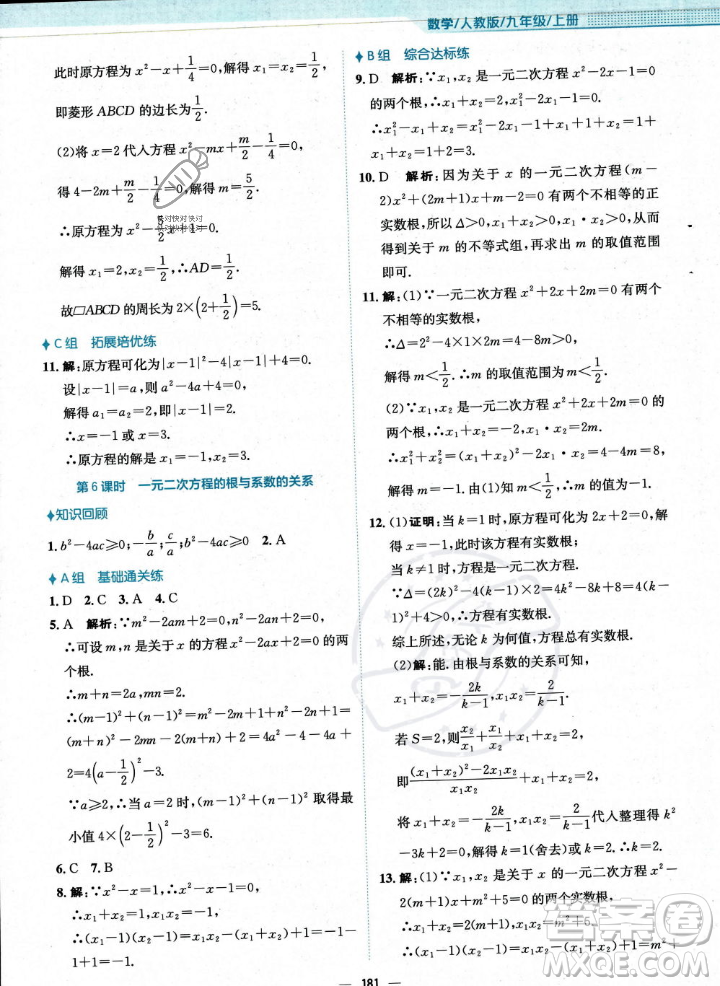 数学/人教版/九年级/上册
此时原方程为 x²-x+1/4=0,解得 x₁=x₂=1/2,
即菱形 ABCD 的边长为1/2.
(2)将 x=2 代入方程 x²-mx+m/2-1/4=0,
得 4-2m+m/2-1/4=0,解得 m=5/2.
∴原方程为 x²-5/2x+1=0.
解得 x₁=2,x₂=1/2,∴AD=1/2.
故▱ABCD 的周长为 2×(2+1/2)=5.
C组 拓展培优练
11. 解:原方程可化为|x-1|²-4|x-1|+4=0.
设|x-1|=a,则 a²-4a+4=0,
解得 a₁=a₂=2,即|x-1|=2.
∴x=3 或 x=-1.
∴原方程的解是 x₁=3,x₂=-1.
第6课时 一元二次方程的根与系数的关系
知识回顾
1. b²-4ac≥0;-b/a;c/a;b²-4ac≥0 2. A
A组 基础通关练
1. D 2. C 3. A 4. C
5. A 解析:∵m²-2am+2=0,n²-2an+2=0,
∴可设 m,n 是关于 x 的方程 x²-2ax+2=0 的两
个根.
∴m+n=2a,mn=2.
∴(m-1)²+(n-1)²=m²-2m+1+n²-2n+1
=(m+n)²-2mn-2(m+n)+2=4a²-4-4a+
2=4(a-1/2)²-3.
∵a≥2,∴当 a=2 时,(m-1)²+(n-1)² 取得最
小值 4×(2-1/2)²-3=6.
6. C 7. B
8. 解:∵x²-x=1,∴x²-x-1=0.
∴x₁+x₂=1,x₁·x₂=-1.
∴x₁+x₂-x₁·x₂=(x₁+x₂)-x₁·x₂=1-(-1)=
1+1=2.
B组 综合达标练
9. D 解析:∵x₁,x₂ 是一元二次方程 x²-2x-1=0
的两个根,∴x₁+x₂=2,x₁²-2x₁-1=0.
∴x₁²-x₁+x₂=x₁²-2x₁-1+x₁+1+x₂=0+1+
x₁+x₂=1+2=3.
10. D 解析:因为关于 x 的一元二次方程(m-
2)x²+(2m+1)x+m-2=0 有两个不相等的正
实数根,所以 Δ>0,x₁+x₂>0,x₁x₂>0,从而
得到关于 m 的不等式组,再求出 m 的取值范围
即可.
11. 解:(1)∵一元二次方程 x²+2x+2m=0 有两个
不相等的实数根,
∴Δ=2²-4×1×2m=4-8m>0,
解得 m<1/2.∴m 的取值范围为 m<1/2.
(2)∵x₁,x₂ 是一元二次方程 x²+2x+2m=0 的
两个根,∴x₁+x₂=-2,x₁·x₂=2m.
∴x₁²+x₂²=(x₁+x₂)²-2x₁·x₂=4-4m=8,
解得 m=-1.∵当 m=-1 时,m<1/2,∴m=-1.
12. (1)证明:当 k=1 时,原方程可化为 2x+2=0,
解得 x=-1,此时该方程有实数根;
当 k≠1 时,方程是一元二次方程,
∵Δ=(2k)²-4(k-1)×2=4k²-8k+8=4(k-
1)²+4>0,∴此时方程有实数根.
综上所述,无论 k 为何值,方程总有实数根.
(2)解:能. 由根与系数的关系可知,
x₁+x₂=-2k/(k-1),x₁x₂=2/(k-1).
若 S=2,则x₂/x₁+x₁/x₂+x₁+x₂=2,
即((x₁+x₂)²-2x₁x₂)/(x₁x₂)+x₁+x₂=2.
将 x₁+x₂=-2k/(k-1),x₁x₂=2/(k-1)代入整理得 k²
-3k+2=0,解得 k=1(舍去)或 k=2.
13. 解:(1)∵x₁,x₂ 是关于 x 的一元二次方程 x²-
2(m+1)x+m²+5=0 的两个实数根,
∴x₁+x₂=2(m+1),x₁x₂=m²+5.
∴(x₁-1)(x₂-1)=x₁x₂-(x₁+x₂)+1=m²+
181
快对快对快对
快对快对快对
答案圈
MXQE.COM